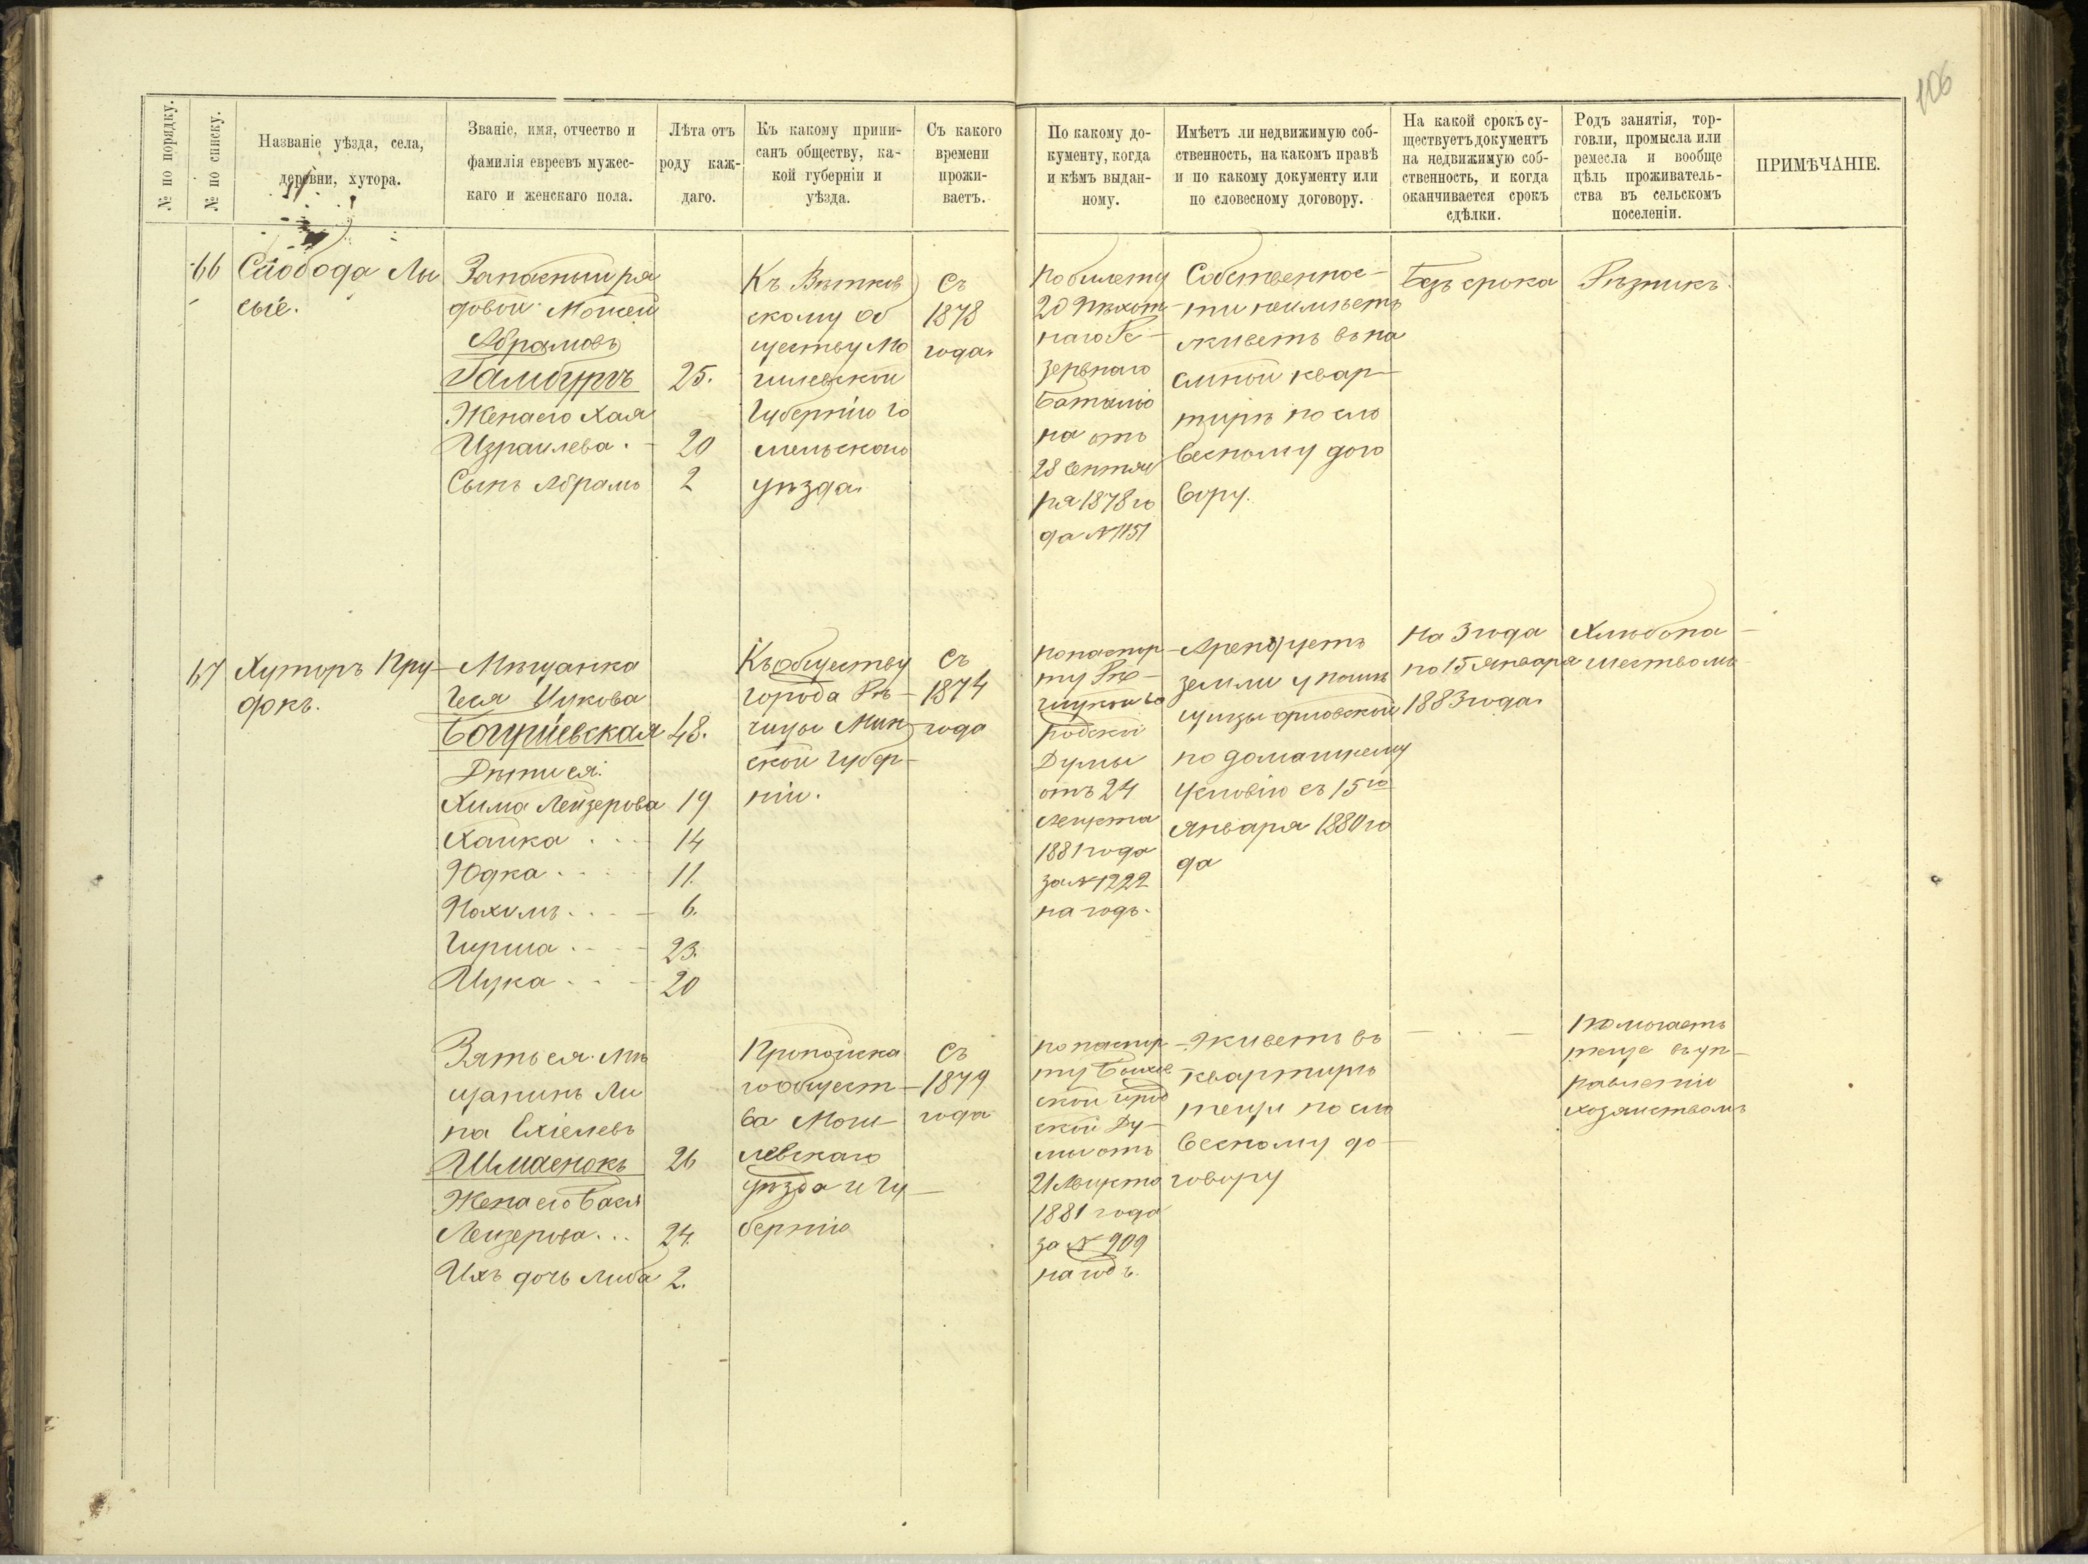 106
№ по порядку.
№ по списку.
Названіе уѣзда, села,
деревни, хутора.
Званіе, имя, отчество и
фамилія евреевъ мужес-
каго и женскаго пола.
Лѣта отъ
роду каж-
даго.
Къ какому припи-
санъ обществу, ка-
кой губерніи и
уѣзда.
Съ какого
времени
прожи-
ваетъ.
По какому до-
кументу, когда
и кѣмъ выдан-
ному.
Имѣетъ ли недвижимую соб-
ственность, на какомъ правѣ
и по какому документу или
по словесному договору.
На какой срокъ су-
ществуетъ документъ
на недвижимую соб-
ственность, и когда
оканчивается срокъ
сдѣлки.
Родъ занятія, тор-
говли, промысла или
ремесла и вообще
цѣль проживатель-
ства въ сельскомъ
поселеніи.
ПРИМѢЧАНІЕ.
66
Слобода Лы
сые.
Запасный ря
довой Мовшей
Абрамовъ
Гамбургъ 25.
Жена его Хая
Израилева. - 20
Сынъ Абрамъ 2
Къ Вѣтков
скому об
ществу Мо
гилевской
Губерніи Го
мельскаго
уѣзда.
Съ
1878
года.
по билету
20 Пѣхот
наго Ре-
зервнаго
Баталіо
на отъ
28 Сентяб
ря 1878 го
да № 1151
Собственнос-
ти неимѣетъ
живетъ въ на
емной квар-
тирѣ по сло
весному дого
вору.
Безъ срока
Рѣзникъ.
67
Хуторъ Пру-
докъ.
Мѣщанка
Геся Ицкова
Богушевская 48.
Дѣти ея:
Хима Лейзерова 19
Хаика . . 14
Юдка . . . 11.
Нохимъ. . . - 6.
Гирша . . . 23.
Ицка . . . 20
Къ обществу
города Рѣ-
чицы Мин
ской Губер-
ніи.
Съ
1874
года
по паспор
ту Рѣ-
чицкой Го
родской
Думы
отъ 24
Августа
1881 года
за № 1222
на годъ.
Арендуетъ
земли у помѣ
щицы Орловской
по домашнему
условію съ 15го
Января 1880 го
да
На 3 года
по 15 Января
1883 года.
Хлѣбопа-
шествомъ
Зять ея мѣ
щанинъ Ли
па Ехіелевъ
Шмаенокъ 26
Жена его Бася
Лейзерова . . . 24.
Ихъ дочь Либа 2.
Пропойска
го общест-
ва Моги-
левскаго
уѣзда и Гу-
берніи
Съ
1879
года
по паспор-
ту Быхов
ской Город
ской Ду-
мы отъ
21 Августа
1881 года
за № 909
на годъ.
живетъ въ
квартирѣ
тещи по сло
весному до-
говору
помогаетъ
теще въ уп-
равленіи
хозяйствомъ